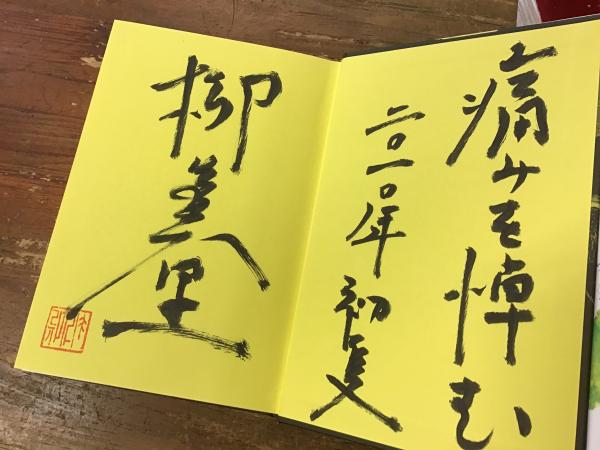 痛みを悼む
二〇一〇年 初夏
柳美里